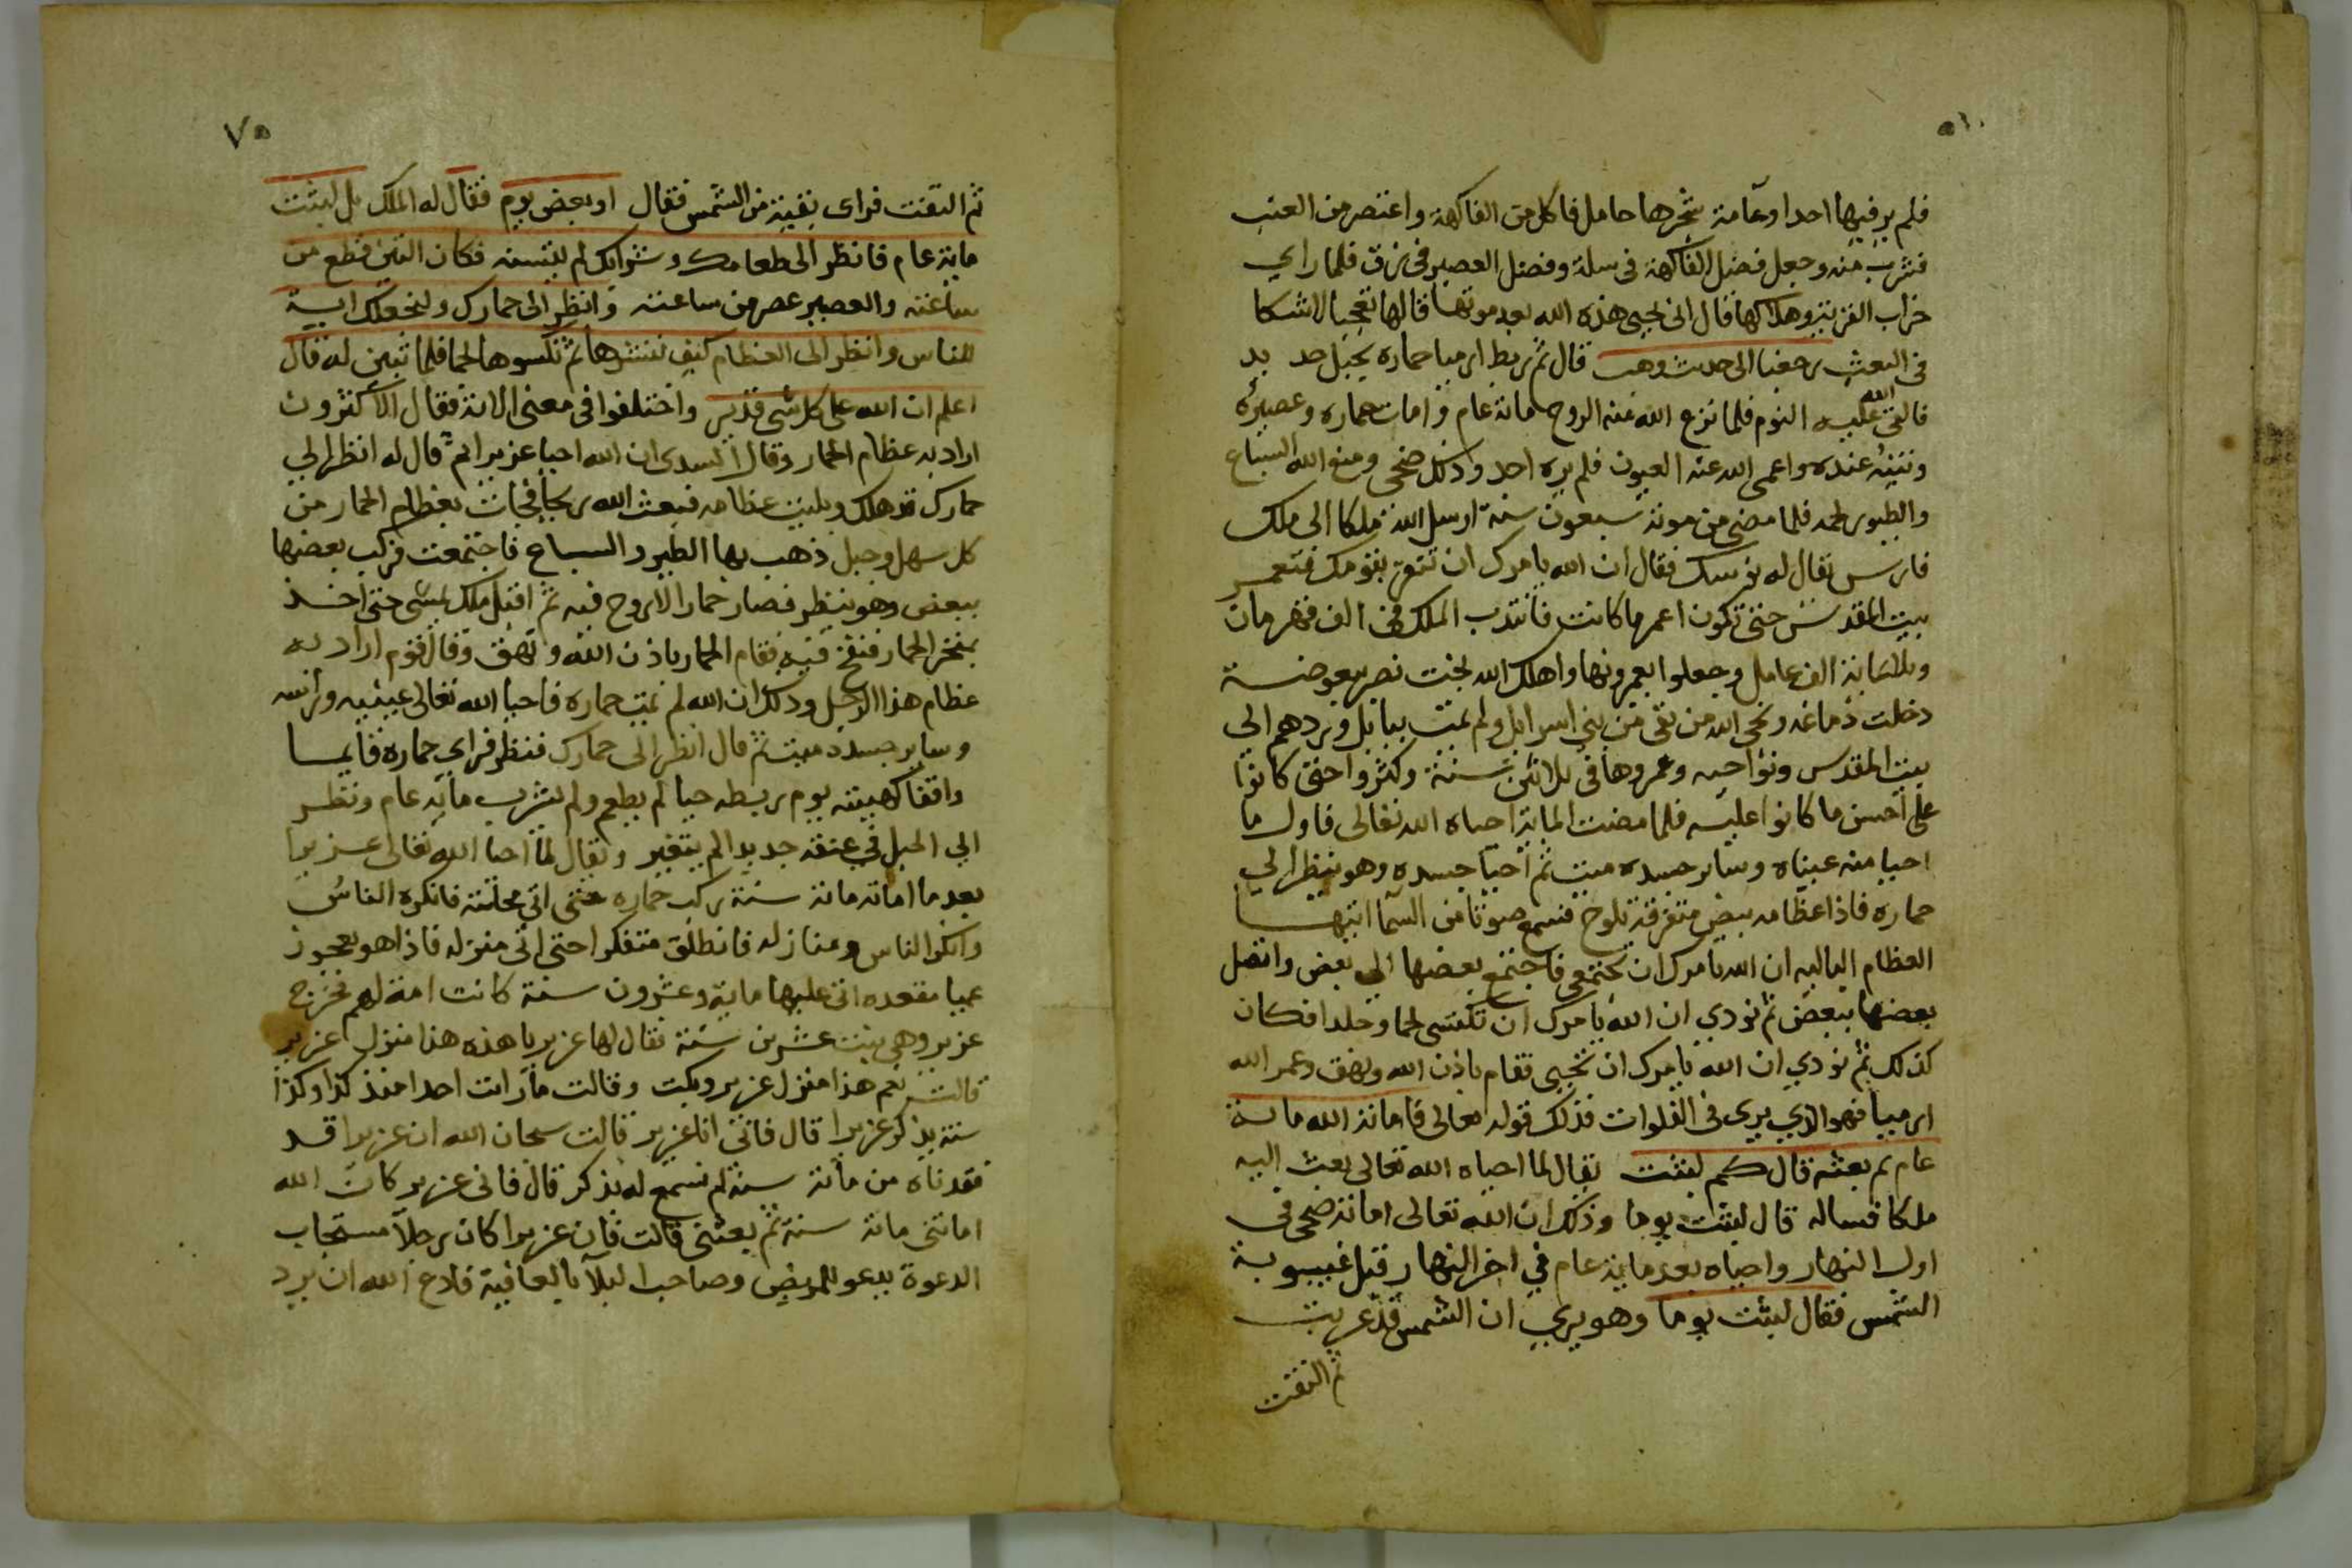 فلم ير فيها احدا وعامة شجرها حامل فاكل من الفاكهة واعتصر من العنب
فشرب منه وجعل فضل الفاكهة فى سلة وفضل العصير فى زق فلما راي
خراب القرية وهلاكها قال انى يحيى هذه الله بعد موتها قالها تعجبا لا شكا
فى البعث رجعنا الى حديث وهب قال ثم ربط ارميا حماره بحبل جد يد
فالقى الله عليه النوم فلما نزع الله منه الروح مائة عام وامات حماره وعصيره
وتينه عنده واعمى الله عنه العيون فلم يره احد وذلك ضحى ومنع الله السباع
والطيور لحمه فلما مضى من موته سبعون سنة ارسل الله ملكا الى ملك
فارس يقال له نوسك فقال ان الله يامرك ان تنفر بقومك فتعمر
بيت المقدس حتى تكون اعمر ما كانت فانتدب الملك فى الف قهرمان
وثلثماية الف عامل وجعلوا يعمرونها واهلك الله بخت نصر ببعوضة
دخلت دماغه ونجى الله من بقى من بني اسرايل ولم يمت ببابل وردهم الى
بيت المقدس ونواحيه وعمروها فى ثلاثين سنة وكثروا حتى كانوا
على احسن ما كانوا عليه فلما مضت الماية احياه الله تعالى فاول ما
احيا منه عيناه وساير جسده ميت ثم احيا جسده وهو ينظر الي
حماره فاذا عظامه بيض متفرقة تلوح فسمع صوتا من السما ايتها
العظام الباليه ان الله يامرك ان تجتمعى فاجتمع بعضها الى بعض واتصل
بعضها ببعض ثم نودي ان الله يامرك ان تكتسى لحما وجلدا فكان
كذلك ثم نودي ان الله يامرك ان تحيى فقام باذن الله ونهق وعمر الله
ارميا فهو الذي يرى فى الفلوات فذلك قوله تعالى فاماته الله ماية
عام ثم بعثه قال كم لبثت يقال لما احياه الله تعالى بعث اليه
ملكا فساله قال لبثت يوما وذلك ان الله تعالى اماته ضحى فى
اول النهار واحياه بعد ماية عام في اخر النهار قبل غيبوبة
الشمس فقال لبثت يوما وهو يري ان الشمس قد غربت
ثم التفت
ثم التفت فراى بقية من الشمس فقال او بعض يوم فقال له الملك بل لبثت
ماية عام فانظر الى طعامك وشرابك لم يتسنه فكان التين قطع من
ساعته والعصير عصر من ساعته وانظر الى حمارك ولنجعلك اية
للناس وانظر الى العظام كيف ننشزها ثم نكسوها لحما فلما تبين له قال
اعلم ان الله على كل شى قدير واختلفوا فى معنى الاية فقال الاكثرون
اراد به عظام الحمار وقال السدى ان الله احيا عزيرا ثم قال له انظر الي
حمارك قد هلك وبليت عظامه فبعث الله ريحا فجات بعظام الحمار من
كل سهل وجبل ذهب بها الطير والسباع فاجتمعت فركب بعضها
ببعض وهو ينظر فصار حمارا لا روح فيه ثم اقبل ملك يمشى حتى اخذ
بمنخر الحمار فنفخ فيه فقام الحمار باذن الله ونهق وقال قوم اراد به
عظام هذا الرجل وذلك ان الله لم يمت حماره فاحيا الله تعالى عينيه وراسه
وساير جسده ميت ثم قال انظر الى حمارك فنظر فراي حماره قايما
واقفا كهيئته يوم ربطه حيا لم يطعم ولم يشرب ماية عام ونظر
الي الحبل في عنقه جديدا لم يتغير ويقال لما احيا الله تعالى عزيرا
بعد ما اماته مائة سنة ركب حماره حتى اتى محلته فانكره الناس
وانكر الناس ومنازله فانطلق متفكرا حتى اتى منزله فاذا هو بعجوز
عميا مقعده اتى عليها ماية وعشرون سنة كانت امة لهم فخرج
عزير وهي بنت عشرين سنة فقال لها عزير يا هذه هذا منزل عزير
قالت نعم هذا منزل عزير وبكت وقالت ما رايت احدا منذ كذا وكذا
سنة يذكر عزيرا قال فانى انا عزير قالت سبحان الله ان عزيرا قد
فقدناه من مائة سنة لم نسمع له بذكر قال فانى عزير كان الله
اماتنى مائة سنة ثم بعثنى قالت فان عزيرا كان رجلا مستجاب
الدعوة يدعو للمريض وصاحب البلآ بالعافية فادع الله ان يرد